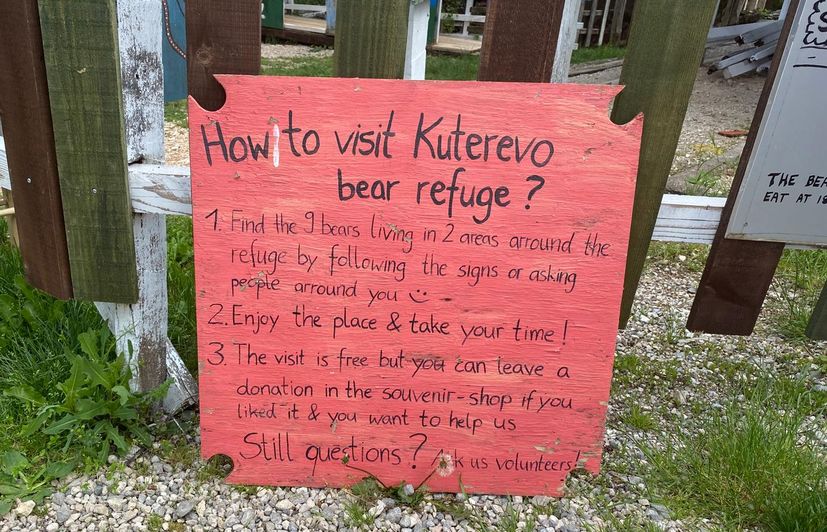 How to visit Kuterevo
bear refuge ?
1. Find the 9 bears living in 2 areas arround the
refuge by following the signs or asking
people arround you
2. Enjoy the place & take your time!
3. The visit is free but you can leave a
donation in the souvenir-shop if you
liked it & you want to help us
Still questions? Ask us volunteers!
THE
EAT AT